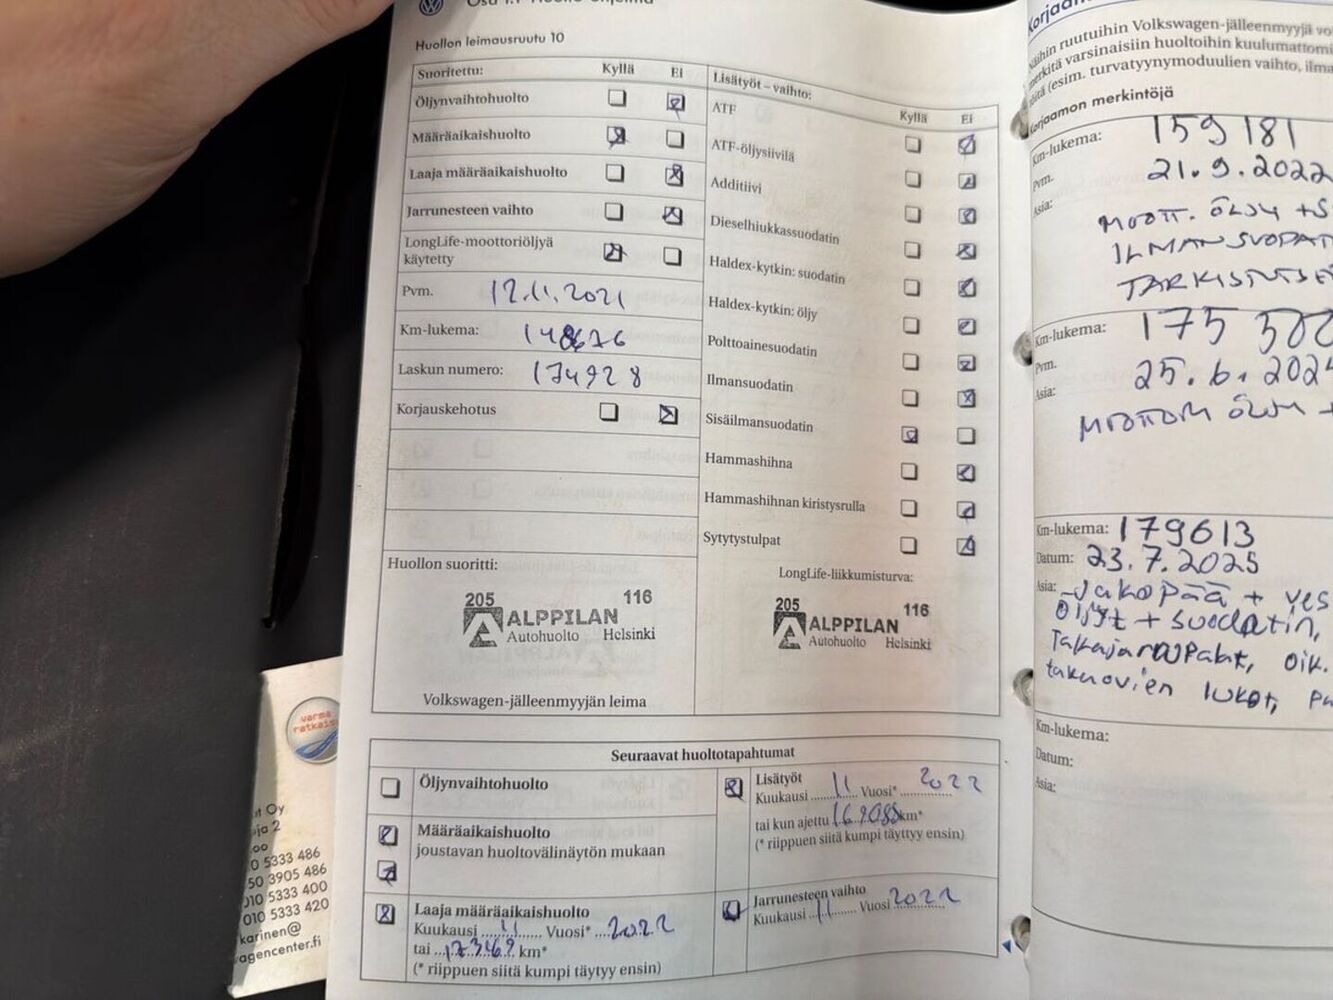 Huollon leimausruutu 10
Suoritettu: Kyllä Ei
Öljynvaihtohuolto
Määräaikaishuolto
Laaja määräaikaishuolto
Jarrunesteen vaihto
LongLife-moottoriöljyä
käytetty
Pvm. 12.11.2021
Km-lukema: 148676
Laskun numero: 174928
Korjauskehotus
Huollon suoritti:
205 116
ALPPILAN
Autohuolto Helsinki
Volkswagen-jälleenmyyjän leima
Lisätyöt – vaihto:
Kyllä Ei
ATF
ATF-öljysiivilä
Additiivi
Dieselhiukkassuodatin
Haldex-kytkin: suodatin
Haldex-kytkin: öljy
Polttoainesuodatin
Ilmansuodatin
Sisäilmansuodatin
Hammashihna
Hammashihnan kiristysrulla
Sytytystulpat
LongLife-liikkumisturva:
205 116
ALPPILAN
Autohuolto Helsinki
Seuraavat huoltotapahtumat
Öljynvaihtohuolto
Määräaikaishuolto
joustavan huoltovälinäytön mukaan
Laaja määräaikaishuolto
Kuukausi 11 Vuosi* 2022
tai km*
(* riippuen siitä kumpi täytyy ensin)
Lisätyöt
Kuukausi 11 Vuosi* 2022
tai kun ajettu km*
(* riippuen siitä kumpi täyttyy ensin)
Jarrunesteen vaihto
Kuukausi 11 Vuosi 2022
ruutuihin Volkswagen-jälleenmyyjä
varsinaisiin huoltoihin
(esim. turvatyynymoduulien vaihto,
merkintöjä
Km-lukema: 159 181
Pvm. 21.9.2022
Asia:
MOOTT. ÖLJY +
TARKISTUS
Km-lukema: 175 500
Pvm. 25.6.2024
Asia:
MOOTTORI ÖLJY +
Km-lukema: 179613
Datum: 23.7.2025
Asia: Jakopää +
Öljyt + suodatin,
Takajarrupalat, oik.
takaovien lukot,
Km-lukema:
Datum:
Asia:
varma
5333 486
50 3905 486
010 5333 400
010 5333 420
karinen@
agencenter.fi